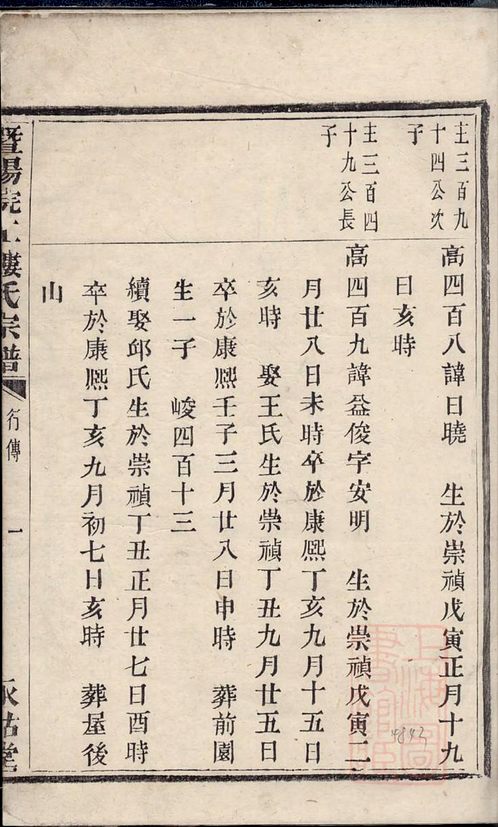 主三百九
十四公次
子
高四百八諱日曉　生於崇禎戊寅正月十九
日亥時
主三百四
十九公長
子
高四百九諱益俊字安明　生於崇禎戊寅二
月廿八日未時卒於康熙丁亥九月十五日
亥時　娶王氏生於崇禎丁丑九月廿五日
卒於康熙壬子三月廿八日申時　葬前園
生一子　峻四百十三
續娶邱氏生於崇禎丁丑正月廿七日酉時
卒於康熙丁亥九月初七日亥時　葬屋後
山
暨陽院上樓氏宗譜
行傳
一
永祜堂